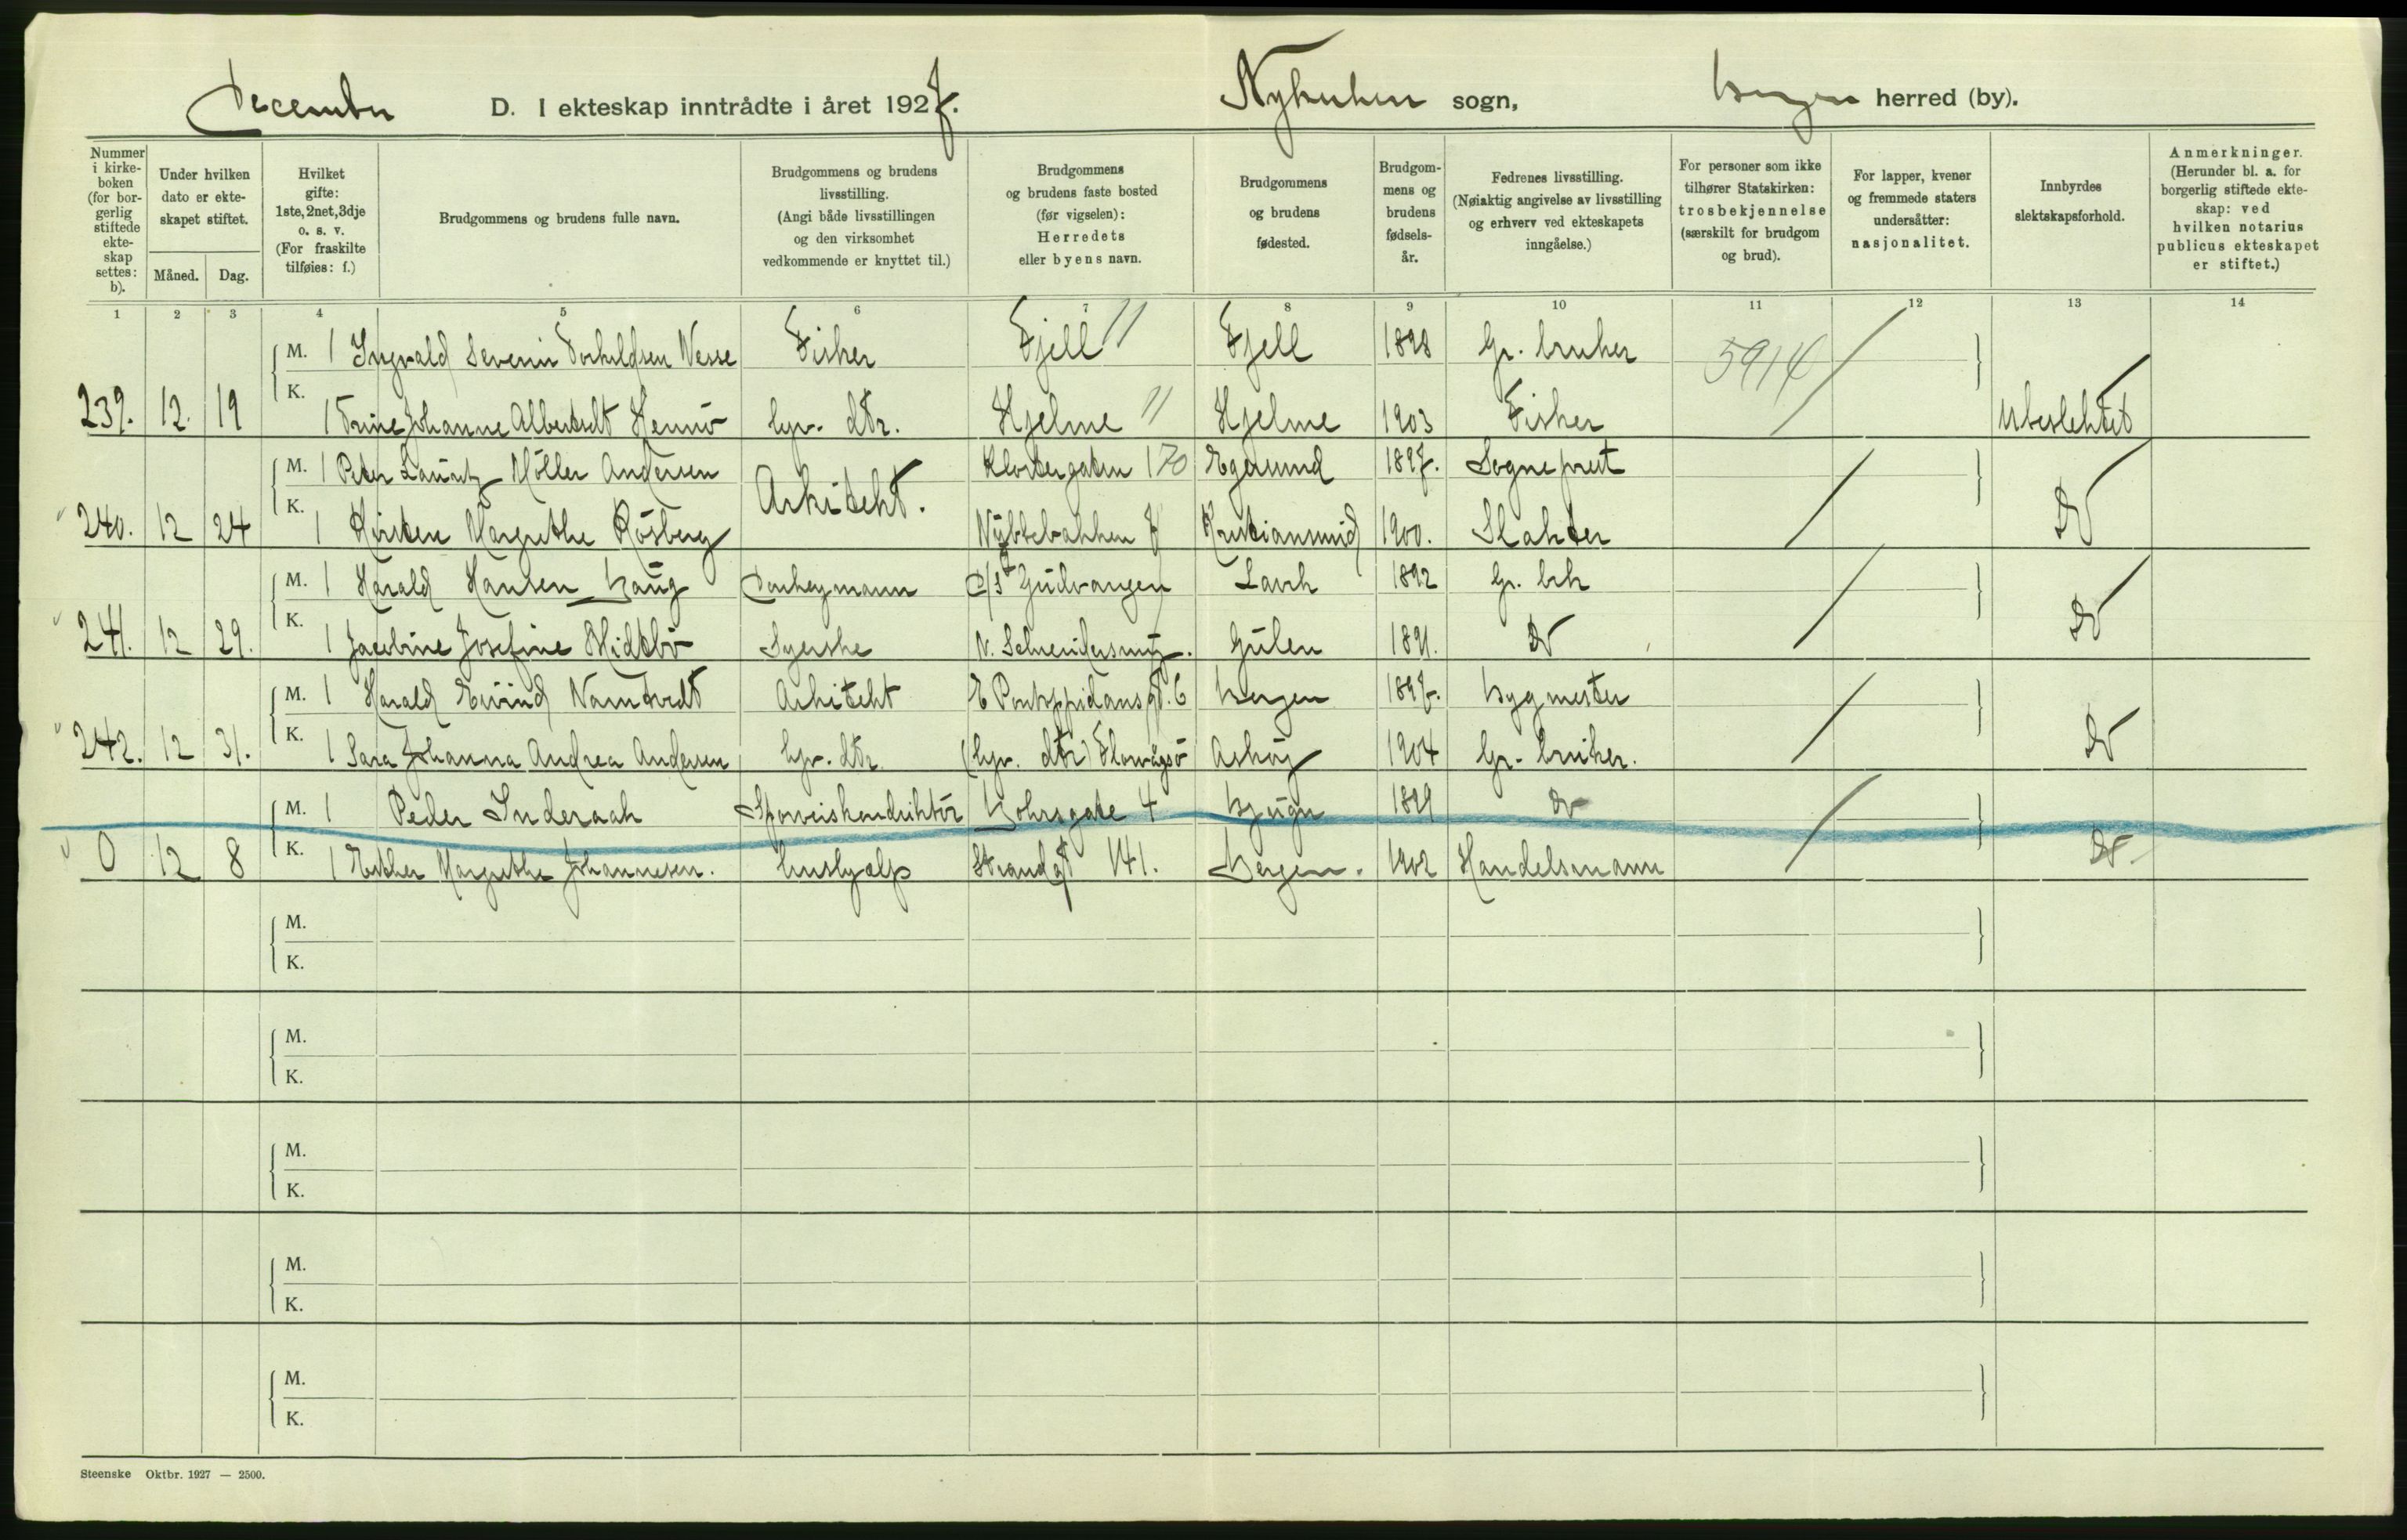 December D. I ekteskap inntrådte i året 1927. Nykirken sogn, Bergen herred (by).
Nummer i kirke- boken (for bor- gerlig stiftede ekte- skap settes: b).
Under hvilken dato er ekte- skapet stiftet.
Måned. Dag.
Hvilket gifte: 1ste, 2net, 3dje o. s. v. (For fraskilte tilføies: f.)
Brudgommens og brudens fulle navn.
Brudgommens og brudens livsstilling. (Angi både livsstillingen og den virksomhet vedkommende er knyttet til.)
Brudgommens og brudens faste bosted (før vigselen): Herredets eller byens navn.
Brudgommens og brudens fødested.
Brudgom- mens og brudens fødsels- år.
Fedrenes livsstilling. (Nøiaktig angivelse av livsstilling og erhverv ved ekteskapets inngåelse.)
For personer som ikke tilhører Statskirken: trosbekjennelse (særskilt for brudgom og brud).
For lapper, kvener og fremmede staters undersåtter: nasjonalitet.
Innbyrdes slektskapsforhold.
Anmerkninger. (Herunder bl. a. for borgerlig stiftede ekte- skap: ved hvilken notarius publicus ekteskapet er stiftet.)
1 2 3 4 5 6 7 8 9 10 11 12 13 14
M. 1 Ingvald Severin Torkildsen Nesse Fisker Fjell 11 Fjell 1898 Gr. bruker 5914
239. 12. 19 K. 1 Trine Johanne Albertsdt Hernö hjv. dtr. Hjelme 11 Hjelme 1903 Fisker Ubeslektet
M. 1 Peter Lauritz Möller Andersen Arkitekt. Klostergaten 170 Egersund 1897. Sogneprest
240. 12 24 K. 1 Kirsten Margrethe Rösberg Nübbebakken 7 Kristiansund 1900. Slakter Do
M. 1 Harald Hansen Haug Donkeymann D/S Gudvangen Lavik 1892 Gr. brk
241. 12 29. K. 1 Jacobine Josefine Midtbö Syerske N. Gulen 1891. Do Do
M. 1 Harald Eivind Namtvedt Arkitekt E Pontoppidans gt. 6 Bergen 1897. Bygmester
242. 12 31. K. 1 Sara Johanna Andrea Andersen hjv. dtr. (hjv. dtr) Askøy 1904 Gr. bruker. Do
M. 1 Peder Inderaak Sporveiskonduktör Bohrsgate 4 Bjugn 1899 Do
0 12 8 K. 1 Esther Margrethe Johannesen. hushjælp Strandgt 141. Bergen. 1902 Handelsmann Do
M.
K.
M.
K.
M.
K.
M.
K.
M.
K.
Steenske Oktbr. 1927 — 2500.